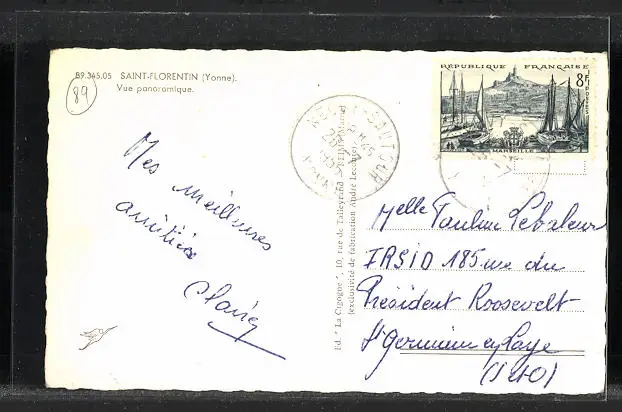 89.345.05 SAINT-FLORENTIN (Yonne).
Vue panoramique.
89
Mes meilleures
amitiés
RÉPUBLIQUE FRANÇAISE
8F
MARSEILLE
Ed. "La Cigogne", 10, rue de Talleyrand - REIMS (Marne)
(exclusivité de fabrication André Leconte)
Melle Pauline
IRSID 185 rue du
Président Roosevelt
St Germain en Laye
(S&O)